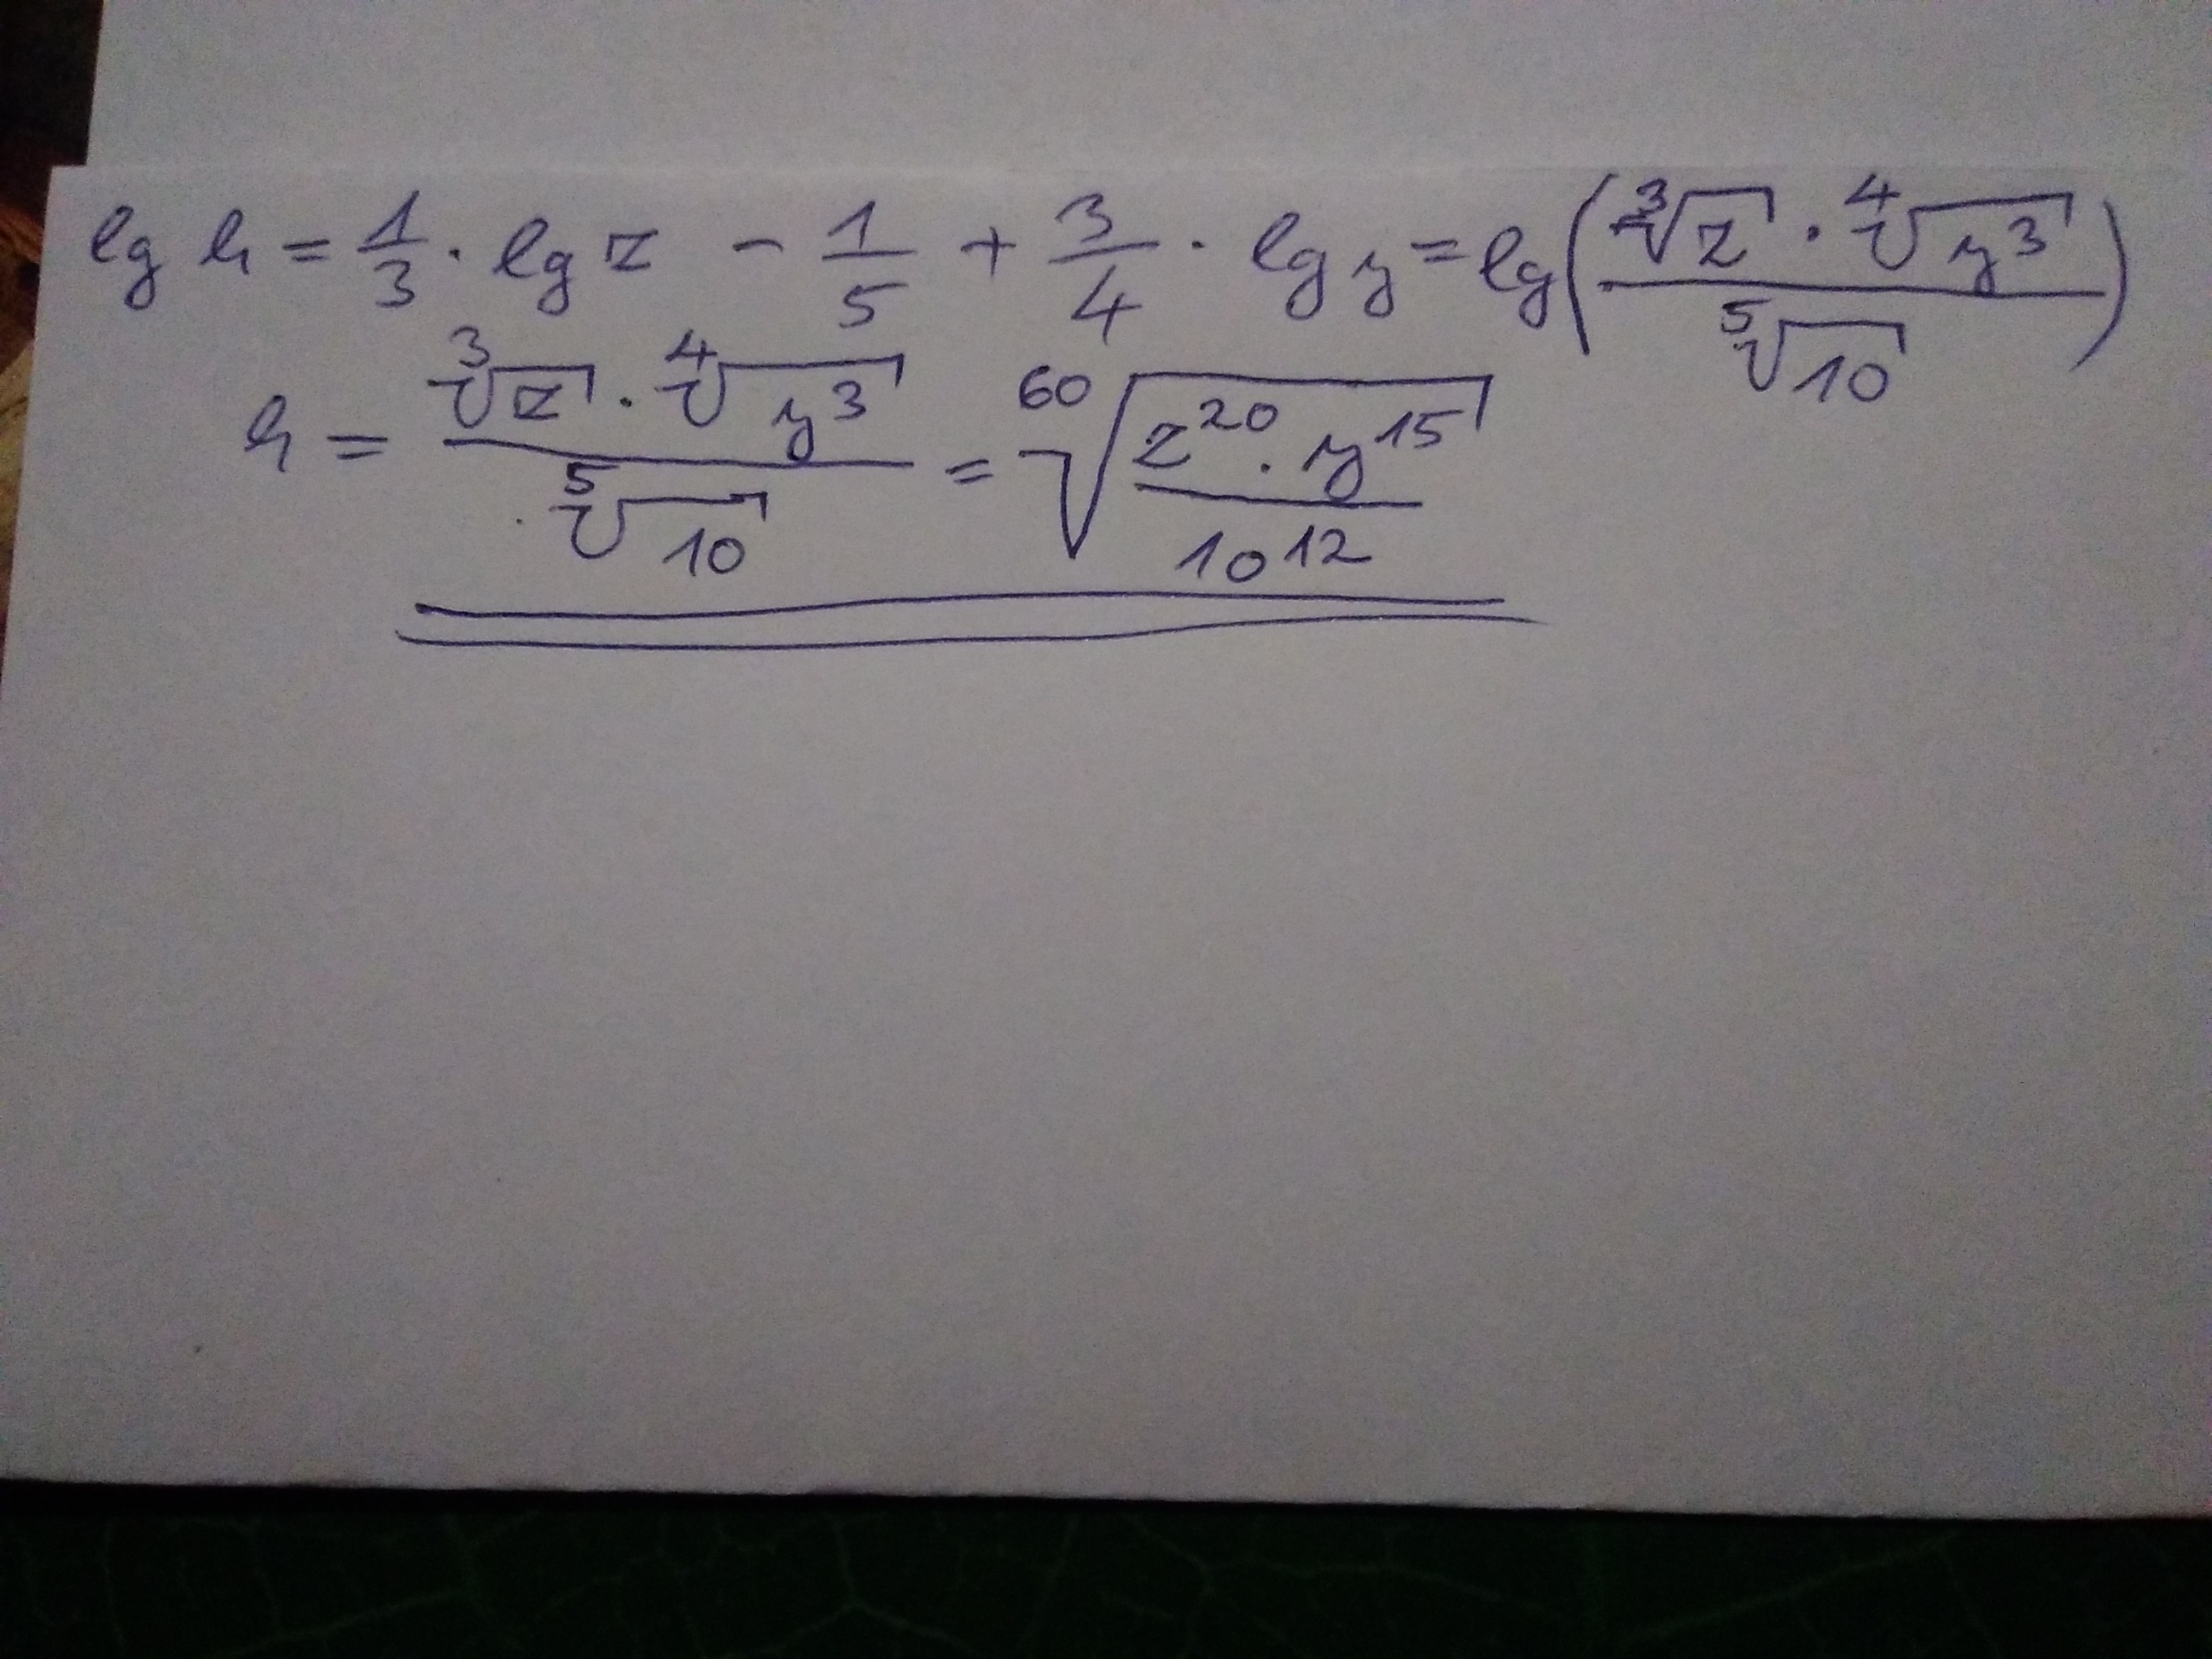 lg h = 1/3 · lg z - 1/5 + 3/4 · lg y = lg(∛z · ∜y³ / ⁵√10)
h = ∛z · ∜y³ / ⁵√10 = ⁶⁰√(z²⁰ · y¹⁵ / 10¹²)